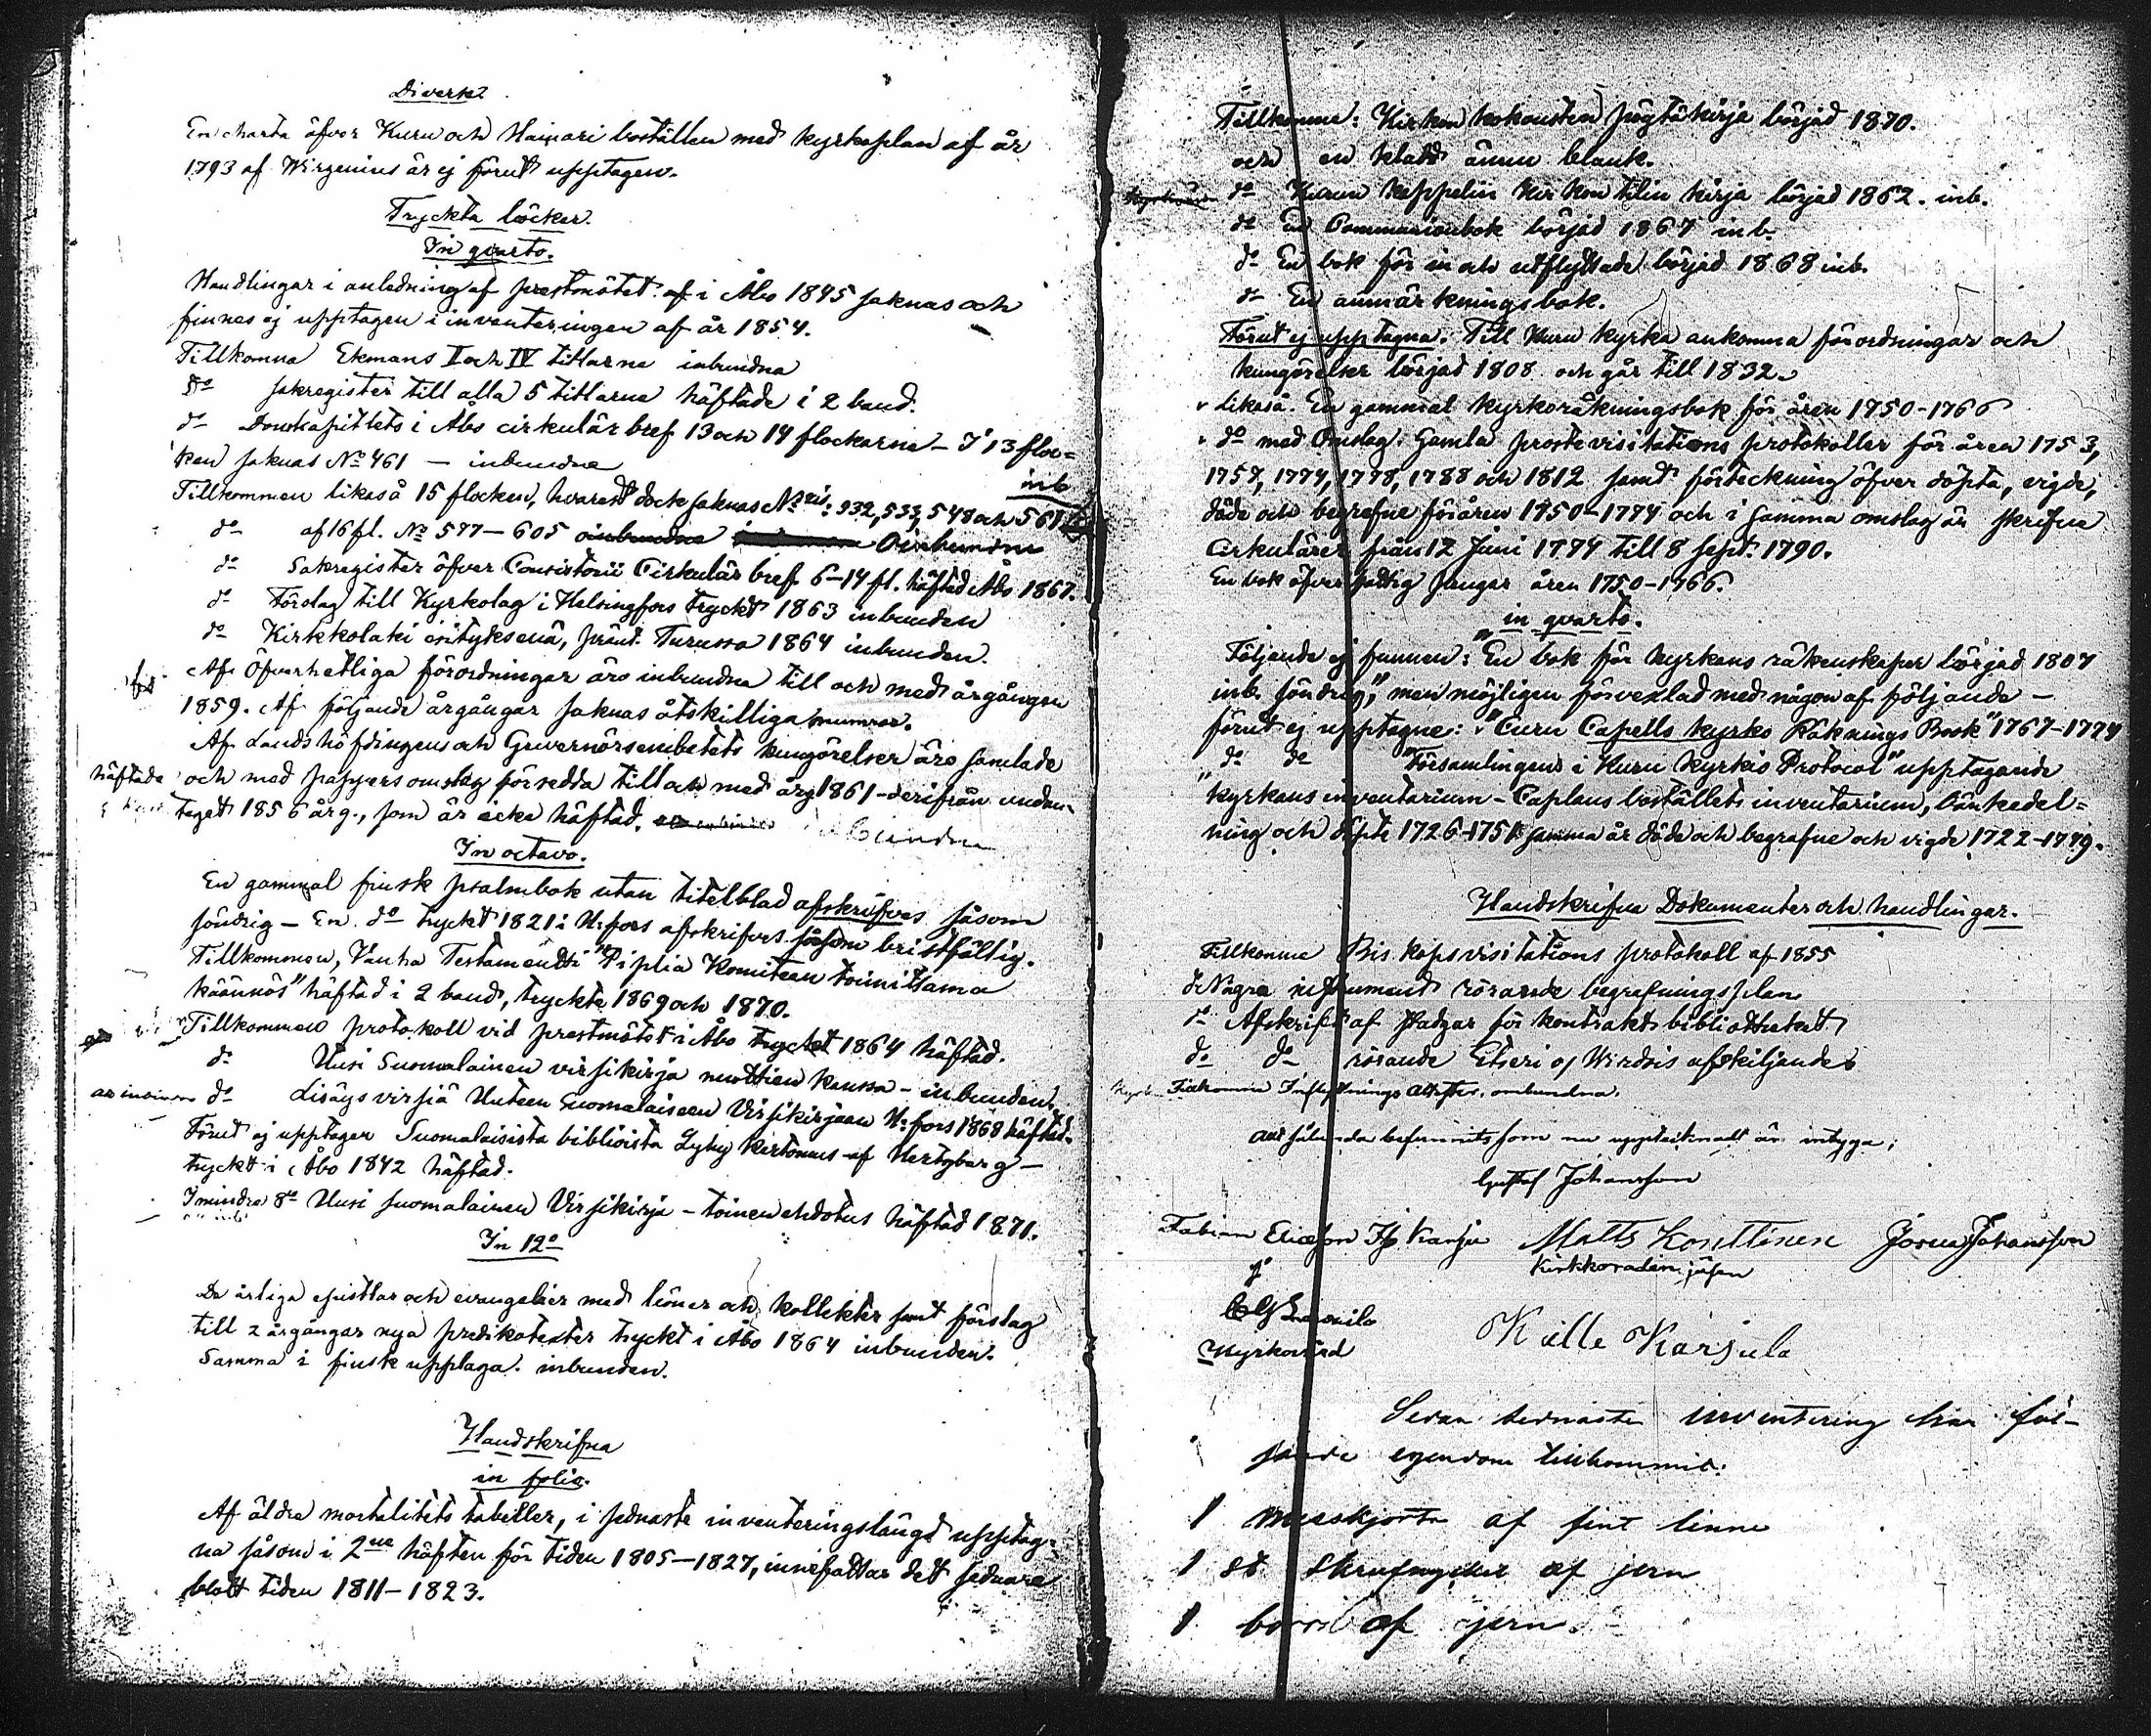 Diverse
En charta öfver Kuru och Hainari boställen med kyrkoplan af år
1793 af Wirzenius är ej förut upptagen.
Tryckta böcker.
In qvarto.
Handlingar i anledning af prestmötet i Åbo 1845 saknas och
finnes ej upptagen i inventeringen af år 1854.
Tillkomna Ekmans I och IV titlarne inbundna
do sakregister till alla 5 titlarne häftade i 2 band.
do Domkapitlets i Åbo cirkulär bref 13 och 14 flockarne – I 13 floc=
ken saknas No 461 – inbundne
inb
Tillkommen likaså 15 flocken, hvarest dock saknas No ris: 532, 533, 548 och 561
do af 16 fl. No 577–605 oinbundne
do Sakregister öfver Consistorii Cirkulär bref 6–14 fl. häftad Åbo 1867.
do Förslag till Kyrkolag i Helsingfors tryckt 1863 inbunden
do Kirkkolaki esityksenä, pränt. Turussa 1864 inbunden.
Af Öfverhetliga förordningar äro inbundna till och med årgången
1859. Af följande årgångar saknas åtskilliga nummror.
Af Landshöfdingens och Guvernörsembetets kungörelser äro samlade
häftade och med pappersomslag försedda till och med årg 1861 – derifrån undan-
taget 1856 årg., som är icke häftad. inbundna
In octavo.
En gammal finsk psalmbok utan titelblad afskrifves såsom
söndrig – En do tryckt 1821 i H:fors afskrifves såsom bristfällig.
Tillkommen, Vanha Testamentti "Piplia Komitean toimittama
käännös" häftad i 2 band, tryckta 1869 och 1870.
Tillkommen protokoll vid prestmötet i Åbo tryckt 1864 häftad.
do Uusi Suomalainen virsikirja nuottien kanssa – inbunden
do Lisäys virsiä Uuteen Suomalaiseen Virsikirjaan H:fors 1868 häftad.
Förut ej upptagen Suomalaisista biblioista Lyhy kertomus af Hertzberg –
tryckt i Åbo 1842 häftad.
I mindre 8o Uusi suomalainen Virsikirja – toinen ehdotus häftad 1871.
In 12o
De årliga epistlar och evangelier med böner och kollekter samt förslag
till 2 årgångar nya predikotexter tryckt i Åbo 1864 inbunden.
Samma i finsk upplaga. inbunden.
Handskrifna
in folio.
Af äldre mortalitets tabeller, i sednaste inventeringslängd upptag-
na såsom i 2ne häften för tiden 1805–1827, innefattar det sednare
blott tiden 1811–1823.
Tillkomne: Kirkon kokousten pöytäkirja börjad 1870.
och en kladd ännu blank.
do Kurun kappelin Kirkon tilin kirja börjad 1862. inb.
do En Communionbok börjad 1867 inb.
do En bok för in och utflyttade börjad 1868 inb.
do En anmärkningsbok.
Förut ej upptagna: Till Kuru kyrka ankomna förordningar och
kungörelser börjad 1808 och går till 1832.
Likaså. En gammal kyrkoräkningsbok för åren 1750–1766
do med omslag: Gamla prostevisitations protokoller för åren 1753,
1757, 1774, 1778, 1788 och 1812 samt förteckning öfver döpta, vigde,
döde och begrafne för åren 1750–1774 och i samma omslag är skrifna
Cirkulärer från 12 Juni 1774 till 8 Sept. 1790.
En bok öfver fattig pengar åren 1750–1766.
in qvarto.
Följande ej funnen: "En bok för kyrkans räkenskaper börjad 1807
inb. söndrig," men möjligen förvexlad med någon af följande –
förut ej upptagne: "Curu Capells kyrko Räknings Book" 1767–1774
do do "Församlingens i Kuru kyrkio Protocol" upptagande
"kyrkans inventarium – Caplans boställets inventarium, bänkedel=
ning och döpte 1726–1751 samma år döde och begrafne och vigde 1722–1779.
Handskrifna Dokumenter och handlingar.
Tillkomne Biskopsvisitations protokoll af 1855
do Några instrument rörande begrafningsplan
do Afskrift af stadgar för kontrakts bibliotheket
do do rörande Etseri o Wirdois afskiljande
Gustaf Johansson
Fabian Ericsson Matts Konttinen Johansson
Kirkkoraadin jäsen
Kyrkovärd Kalle Karjula
Sedan sednaste inventering har föl-
jande egendom tillkommit:
1 messkjorta af fint linne
1 st skrufnyckel af jern
1 borr af jern.